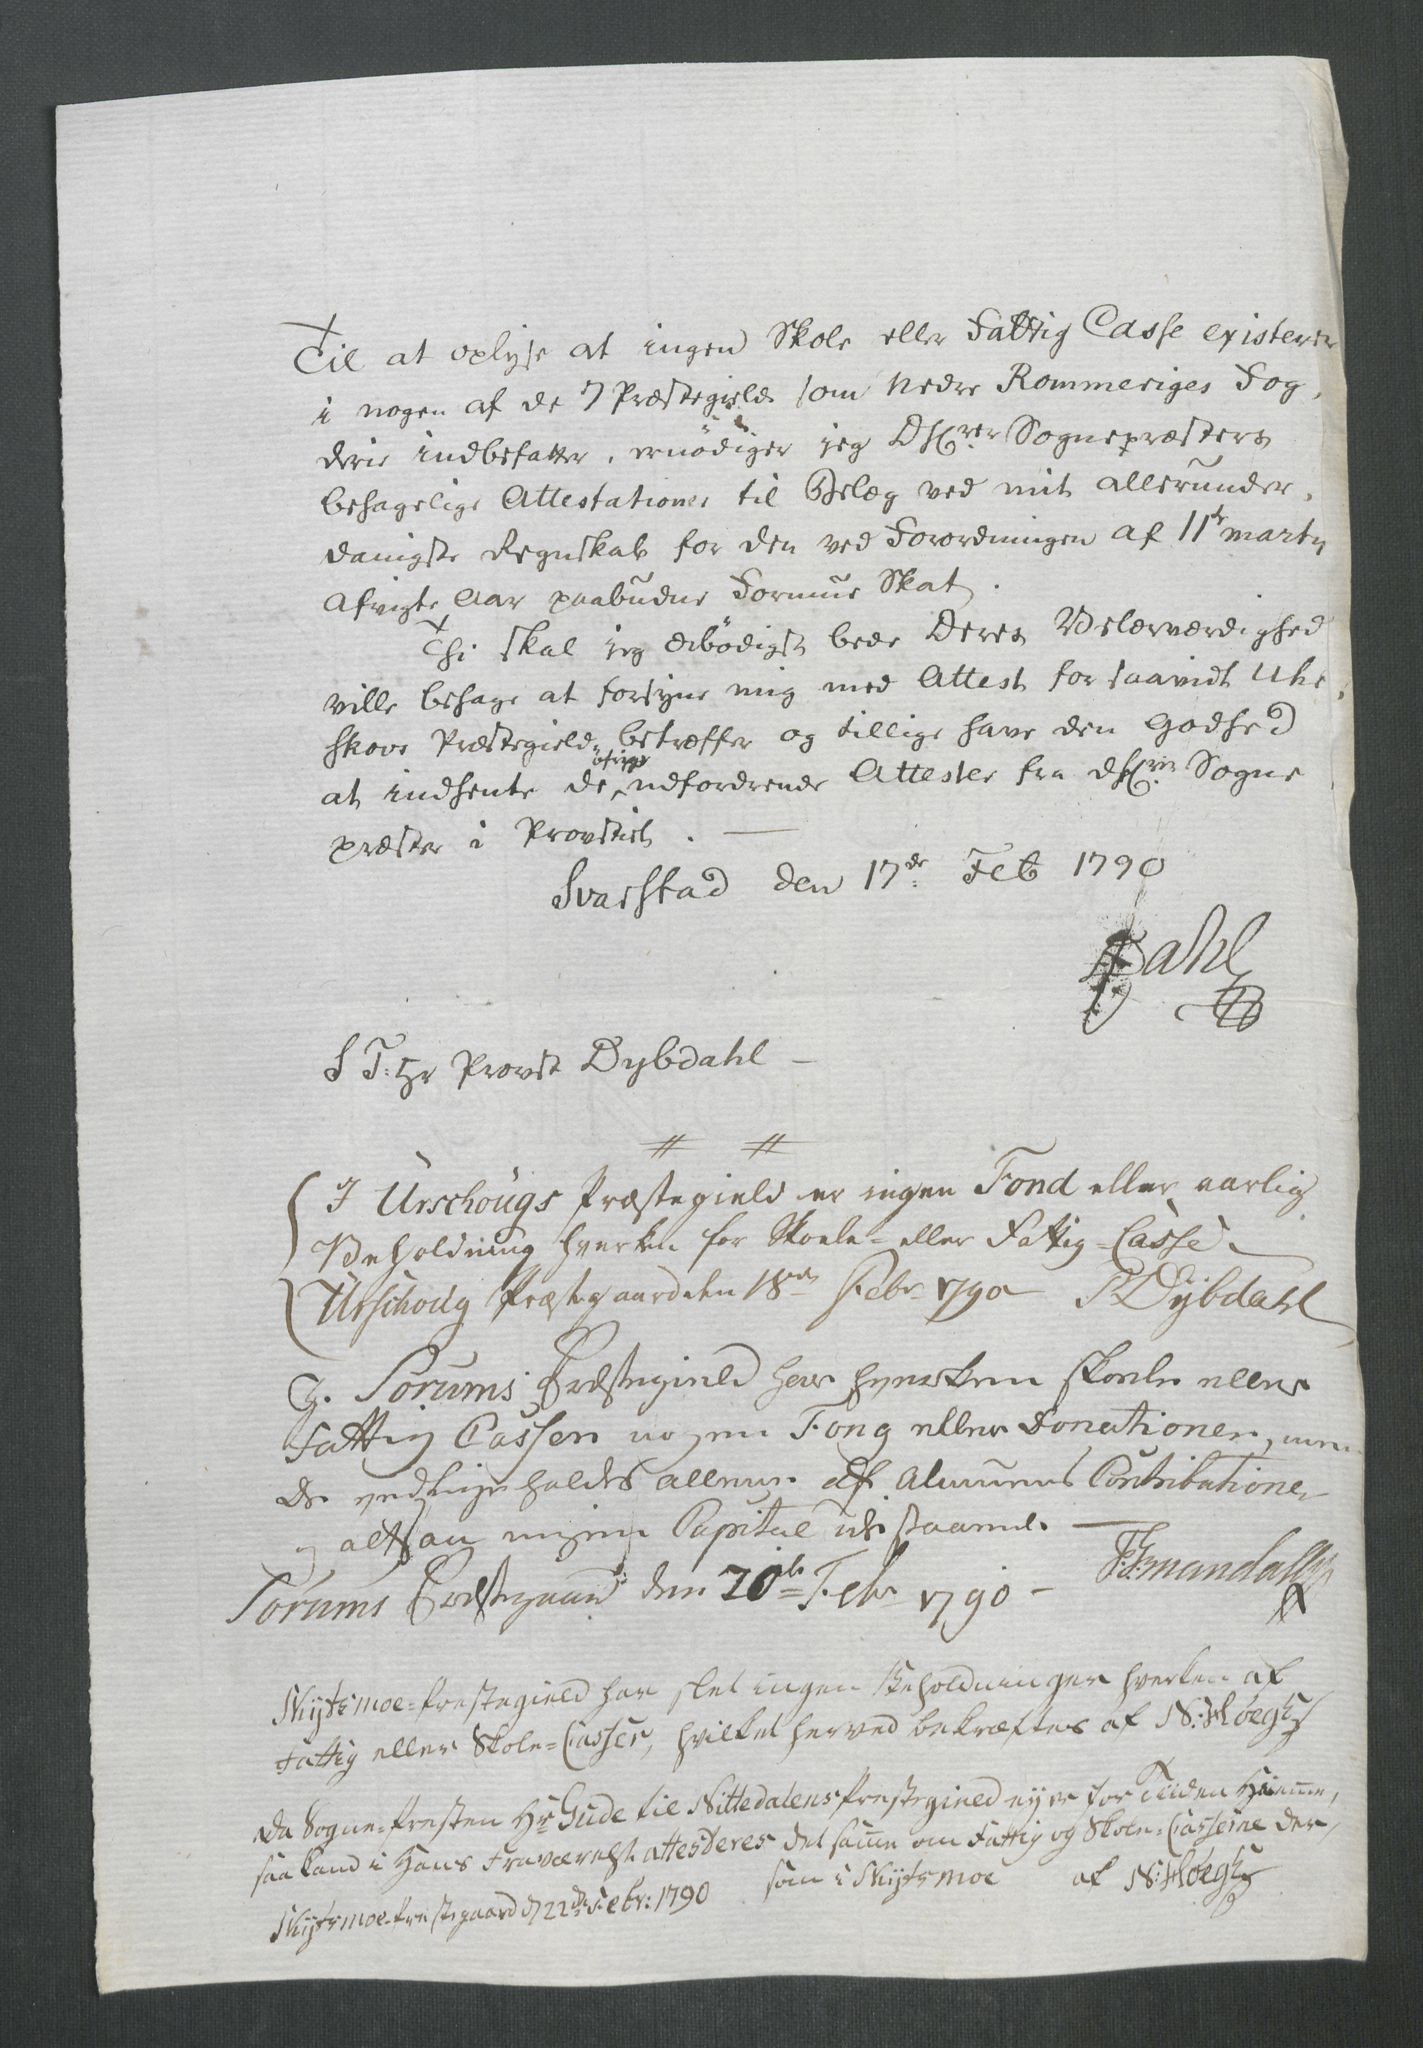 Til at oplyse at ingen Skole eller Fattig Casse existerer
i nogen af de 7 Præstegield som Nedre Rommeriges Fog,
derie indbefatter, ernödiger jeg DHrer Sognepræsters
behagelige Attestationer til Belæg ved mit allerunder,
danigste Regnskab for den ved Forordningen af 11te martz
afvigte Aar paabudne Formue Skat.
Thi skal jeg ærbödigst bede Deres Velærværdighed
ville behage at forsyne mig med Attest for saavidt Uhr,
skovs Præstegield betræffer og tillige have den Godhed
at indhente de öfrige udfordrende Attester fra DHrer Sogne
præster i Provstiet.
Svarstad den 17de Feb 1790
Dahl
S T: Hr Provst Dybdahl
I Urschougs Præstegield er ingen Fond eller aarlig
Beholdning hverken for Skoele- eller Fattig-Casse.
Urschoug Præstegaard den 18de Febr 1790 Dybdahl
I. Sörums Præstegield har hverken Skoele eller
Fattig Cassen nogen Fong eller Donationer, men
de vedligeholdes allene af Almuens Contributioner
og altsaa ingen Capital udestaaende.
Sörums Præstegaard den 20de Febr 1790
Skydsmoe-Præstegield har slet ingen Beholdninger hverken af
Fattig eller Skole-Casser, hvilket herved bekræftes af N: Höegh
Da Sogne-Præsten Hr Gude til Nittedalens Præstegield ey er for Tiiden hiemme,
saa kand i Hans Fraværelse attesteres det samme om Fattig og Skole-Casserne der,
som i Skydsmoe af N: Höegh
Skydsmoe-Præstegaard d 22de Febr: 1790